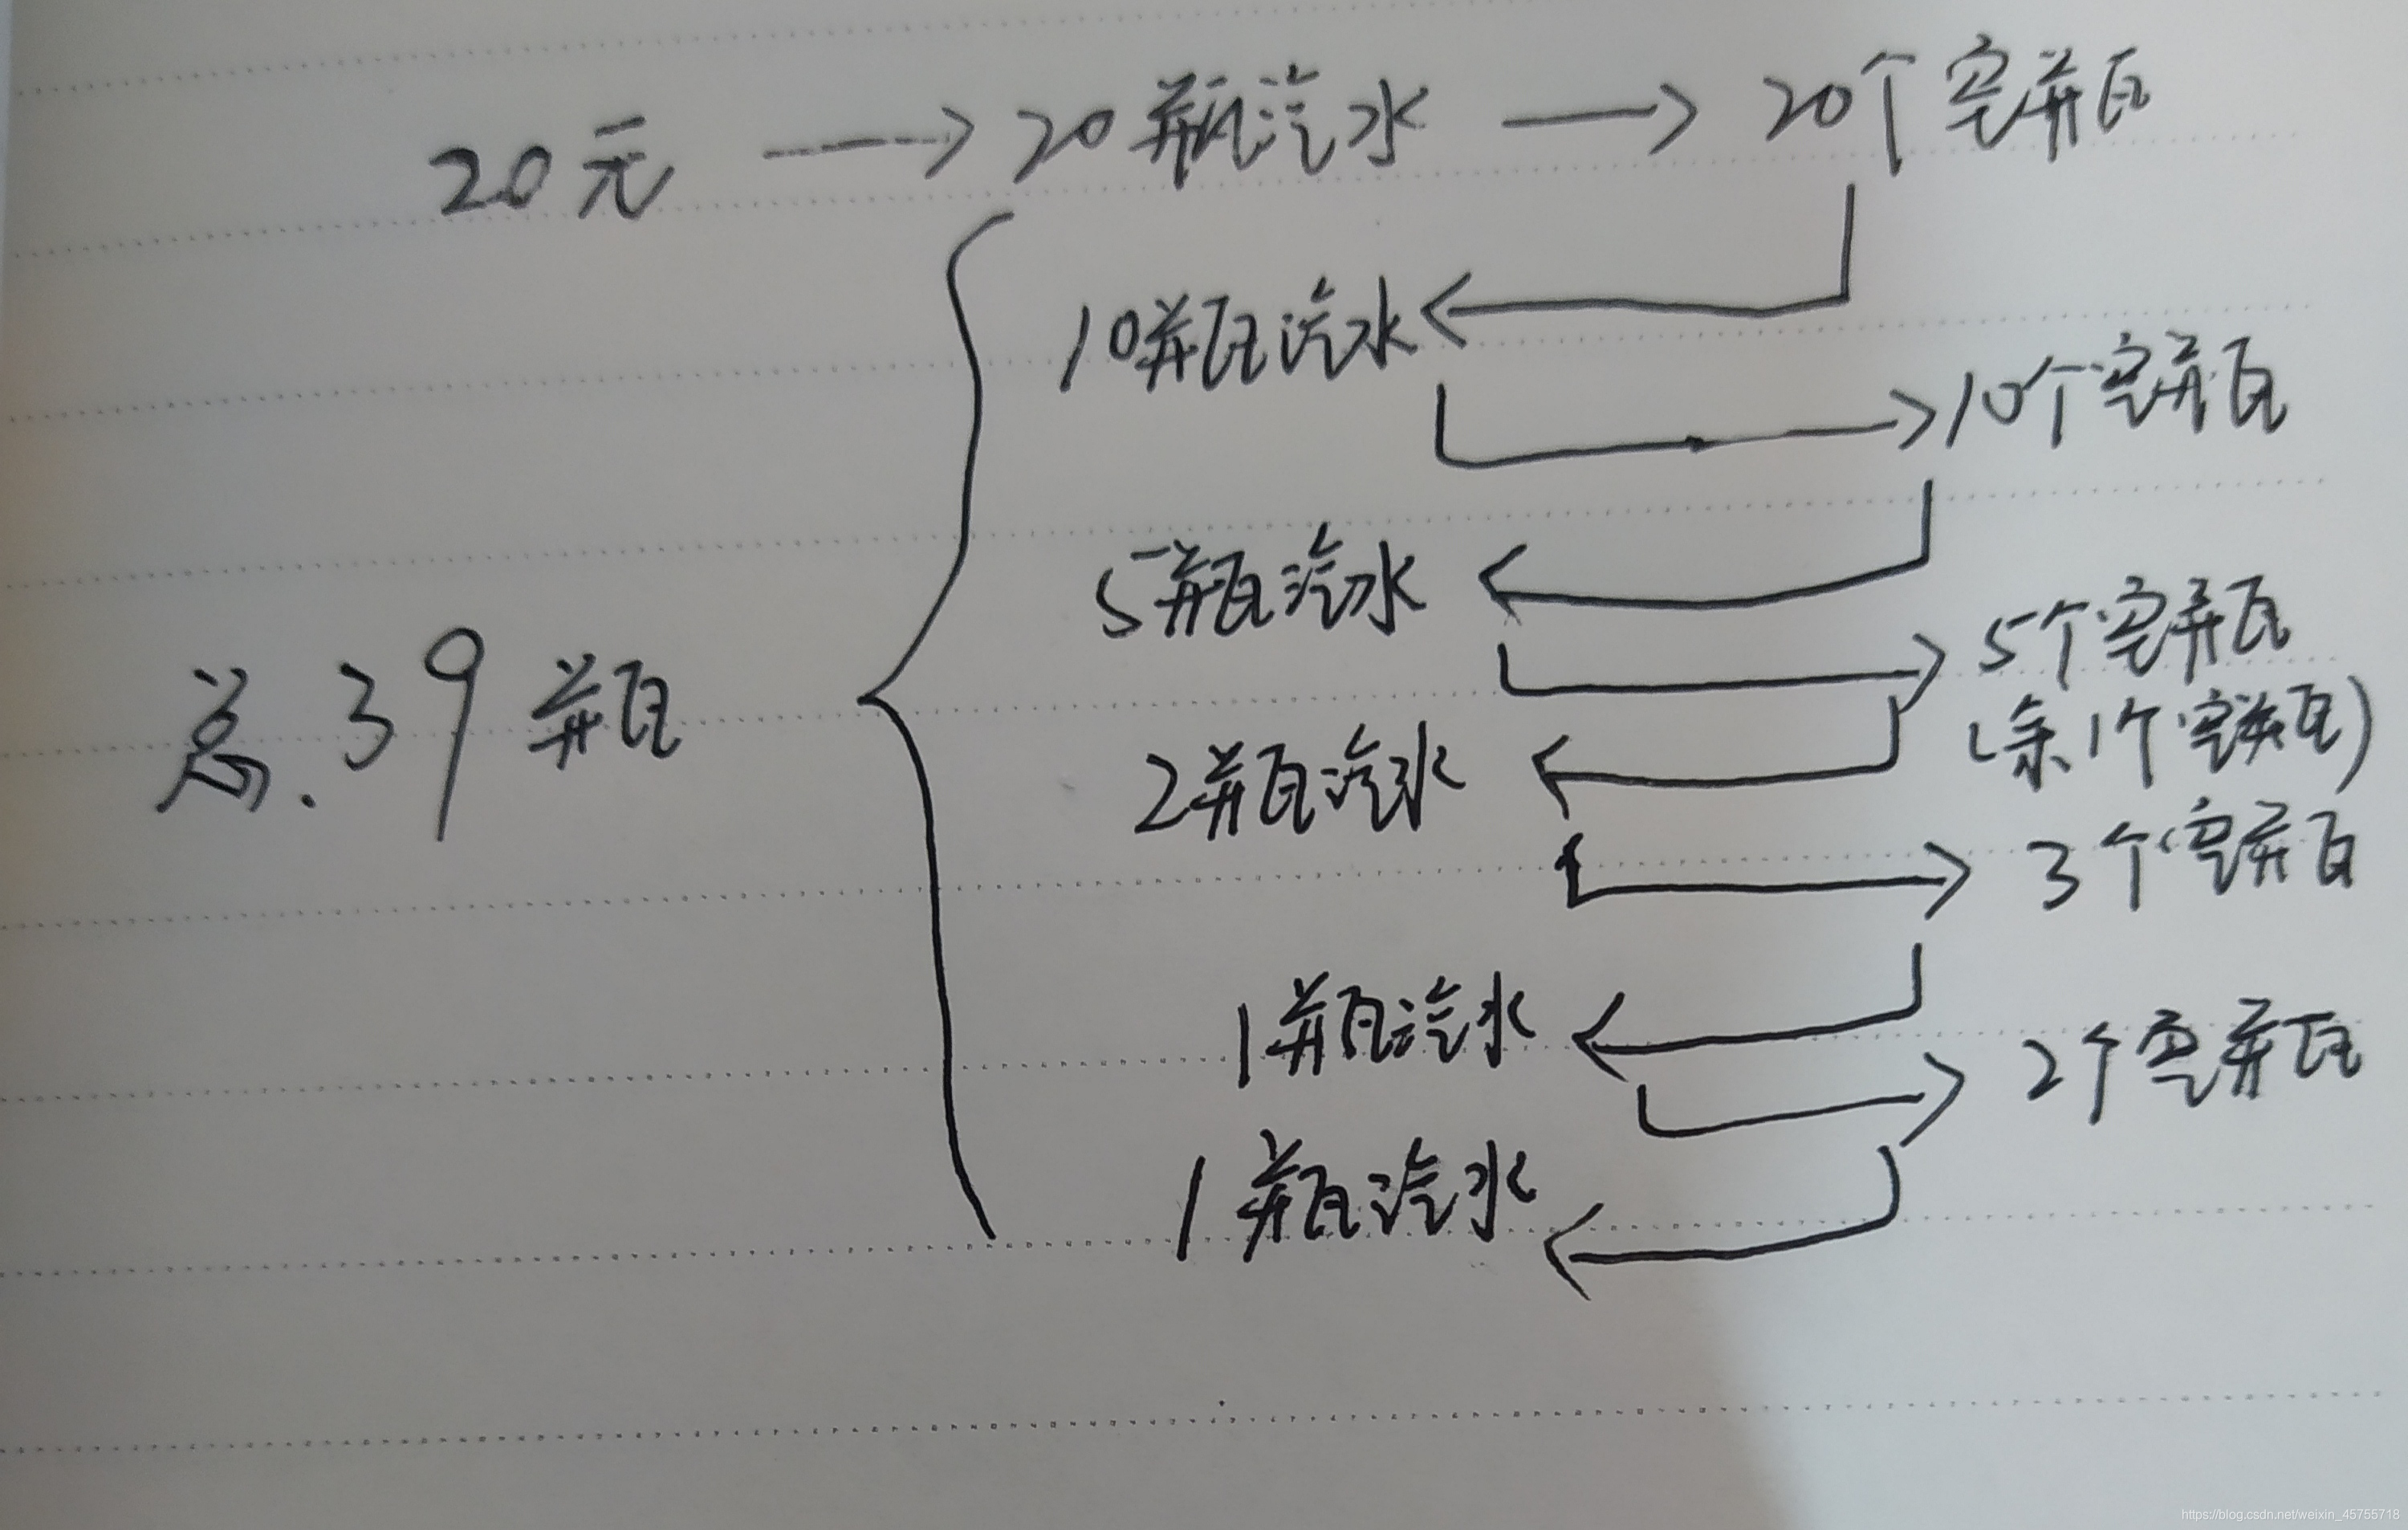 20元 → 20瓶汽水 → 20个空瓶
10瓶汽水
10个空瓶
5瓶汽水
5个空瓶
(余1个空瓶)
总.39瓶
2瓶汽水
3个空瓶
1瓶汽水
2个空瓶
1瓶汽水
https://blog.csdn.net/weixin_45755718